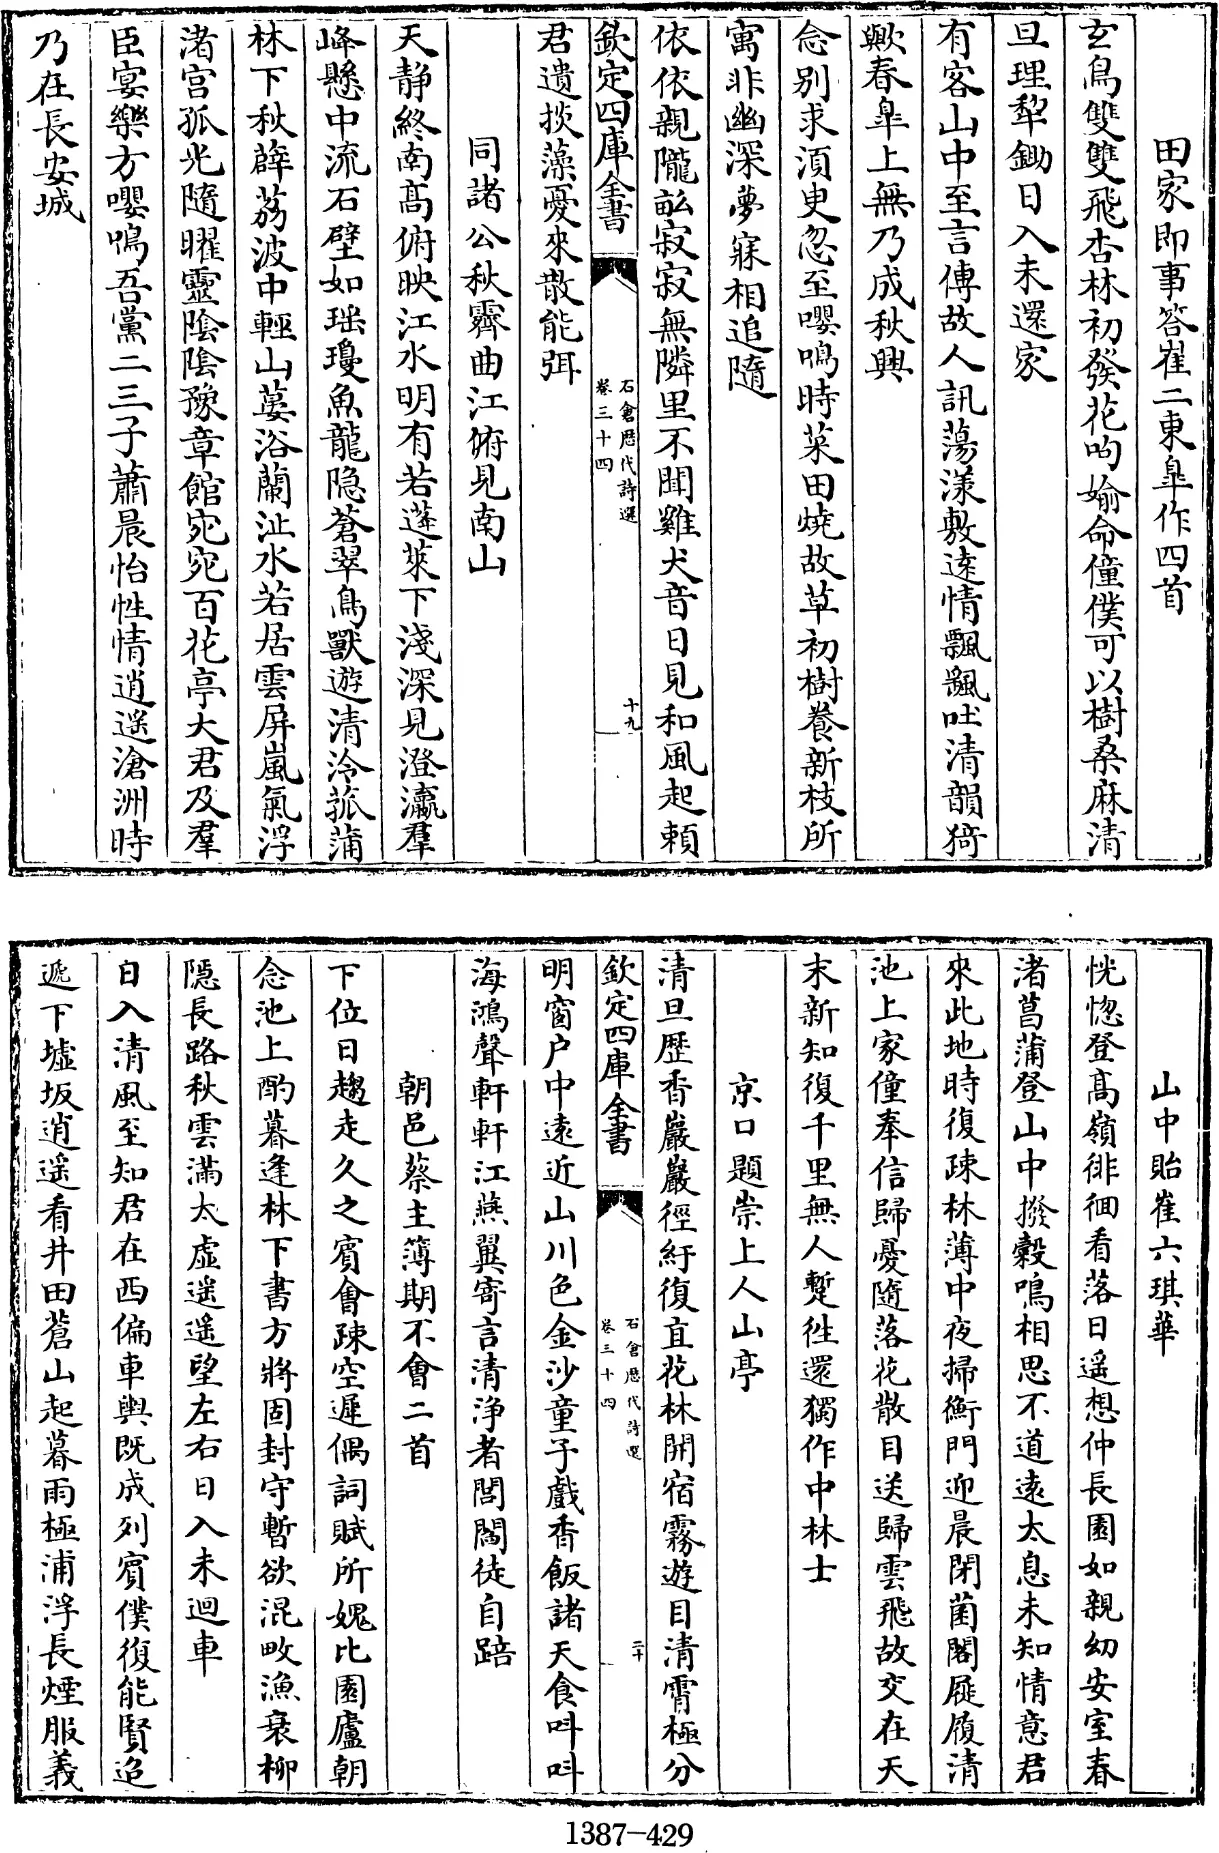 田家即事答崔二東臯作四首
玄鳥雙雙飛杏林初發花呴媮命僮僕可以樹桑麻清
旦理犂鋤日入未還家
有客山中至言傳故人訊蕩漾敷逺情飄飄吐清韻猗
歟春臯上無乃成秋興
念別求須臾忽至嚶鳴時菜田燒故草初樹養新枝所
寓非幽深夢寐相追隨
依依親隴畝寂寂無隣里不聞雞犬音日見和風起賴
欽定四庫全書
石倉歴代詩選
卷三十四
十九
君遺掞藻憂來散能弭
同諸公秋霽曲江俯見南山
天静終南髙俯映江水明有若蓬萊下淺深見澄瀛羣
峰懸中流石壁如瑤瓊魚龍隐蒼翠鳥獸遊清泠菰蒲
林下秋薜荔波中輕山蔓浴蘭沚水若居雲屏嵐氣浮
渚宫孤光隨曜靈陰陰豫章館宛宛百花亭大君及羣
臣宴樂方嚶鳴吾黨二三子蕭晨怡性情逍遥滄洲時
乃在長安城
山中貽崔六琪華
恍惚登髙嶺徘徊看落日遥想仲長園如親幼安室春
渚菖蒲登山中撥穀鳴相思不道逺太息未知情意君
來此地時復疎林薄中夜掃衡門迎晨閉菌閣屣履清
池上家僮奉信歸憂隨落花散目送歸雲飛故交在天
末新知復千里無人蹔徃還獨作中林士
京口題崇上人山亭
清旦歴香巖巖徑紆復直花林開宿霧遊目清霄極分
欽定四庫全書
石倉歴代詩選
卷三十四
二十
明窗户中逺近山川色金沙童子戲香飯諸天食叫叫
海鴻聲軒軒江燕翼寄言清浄者閭閻徒自踣
朝邑蔡主簿期不㑹二首
下位日趨走久之賓㑹疎空遲偶詞賦所媿比園廬朝
念池上酌暮逢林下書方將固封守暫欲混畋漁衰柳
隱長路秋雲滿太虛遥遥望左右日入未迴車
日入清風至知君在西偏車輿既成列賓僕復能賢迢
遞下墟坂逍遥看井田蒼山起暮雨極浦浮長煙服義
1387-429